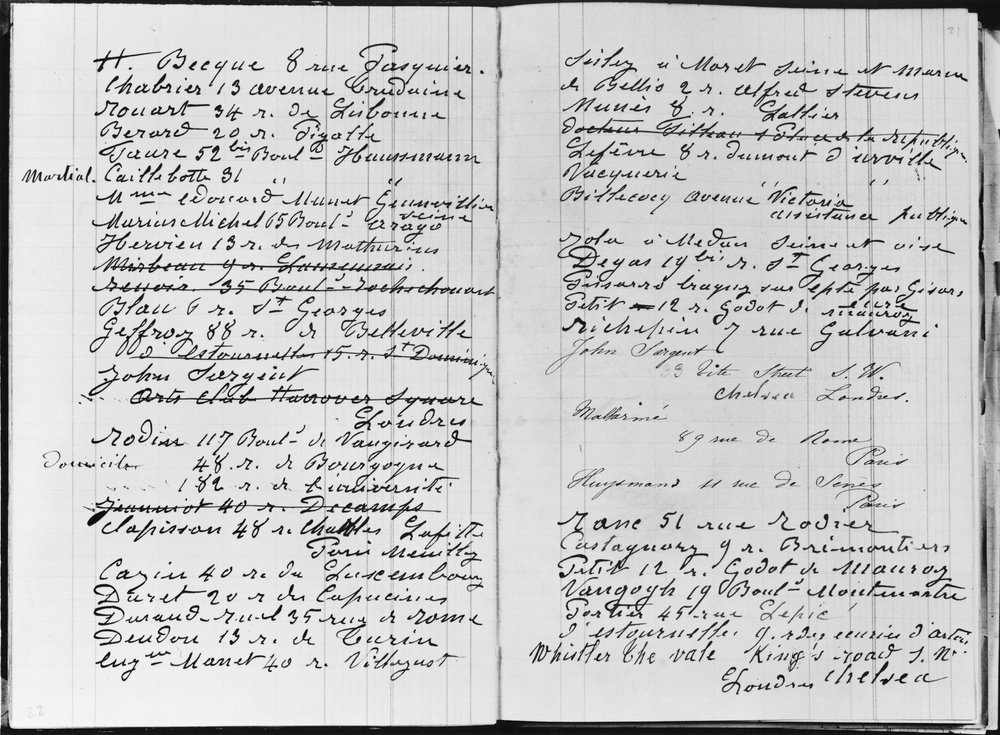 H. Becque 8 rue Pasquier.
Chabrier 13 avenue Trudaine
Rouart 34 r. de Lisbonne
Berard 20 r. Pigalle
Faure 52 bis Boul.d Haussmann
Martial. Caillebotte 31 " "
Mme Edouard Manet Gennevilliers
Seine
Marius Michel 65 Boul.d Arago
Hervieu 13 r. des Mathurins
Mirbeau 9 r. Lamennais.
Renoir. 35 Boul.d Rochechouart
Blau 6 r. St Georges
Geffroy 88 r. de Belleville
d'estournelles 15 r. St Dominique
John Sargent
Arts Club Hanover Square
Londres
Rodin 117 Boul.d de Vaugirard
domicile 48 r. de Bourgogne
182 r. de l'université
Jeanniot 40 r. Decamps
Clapisson 48 r. Charles Lafitte
Paris Neuilly
Cazin 40 r. du Luxembourg
Duret 20 r des Capucines
Durand-Ruel 35 rue de Rome
Deudon 13 r. de Turin
Eugne Manet 40 r. Villejust
22
21
Sisley à Moret Seine et Marne
de Bellio 2 r. Alfred Stevens
8 r. Lallier
docteur 1 Place de la republique
Lefèvre 8 r. dumont d'urville
Vacquerie " "
Billecocq avenue Victoria
assistance publique
Zola à Medan Seine et oise
Degas 19 bis r. St Georges
Pissarro Eragny sur Epte par Gisors
eure
Petit 12 r. Godot de mauroy
Richepin 7 rue Galvani
John Sargent
33 Tite Street S. W.
Chelsea Londres.
Mallarmé
89 rue de Rome
Paris
Huysmans 11 rue de Sèvres
Paris
Ranc 51 rue Rodier
Castagnary 9 r. Brémontiers
Petit 12 r. Godot de Mauroy
Vangogh 19 Boul.d Montmartre
Portier 45 rue Lepic
d'estournelles 9 r des ecuries d'artois
Whistler the vale King's road S. W.
Londres Chelsea